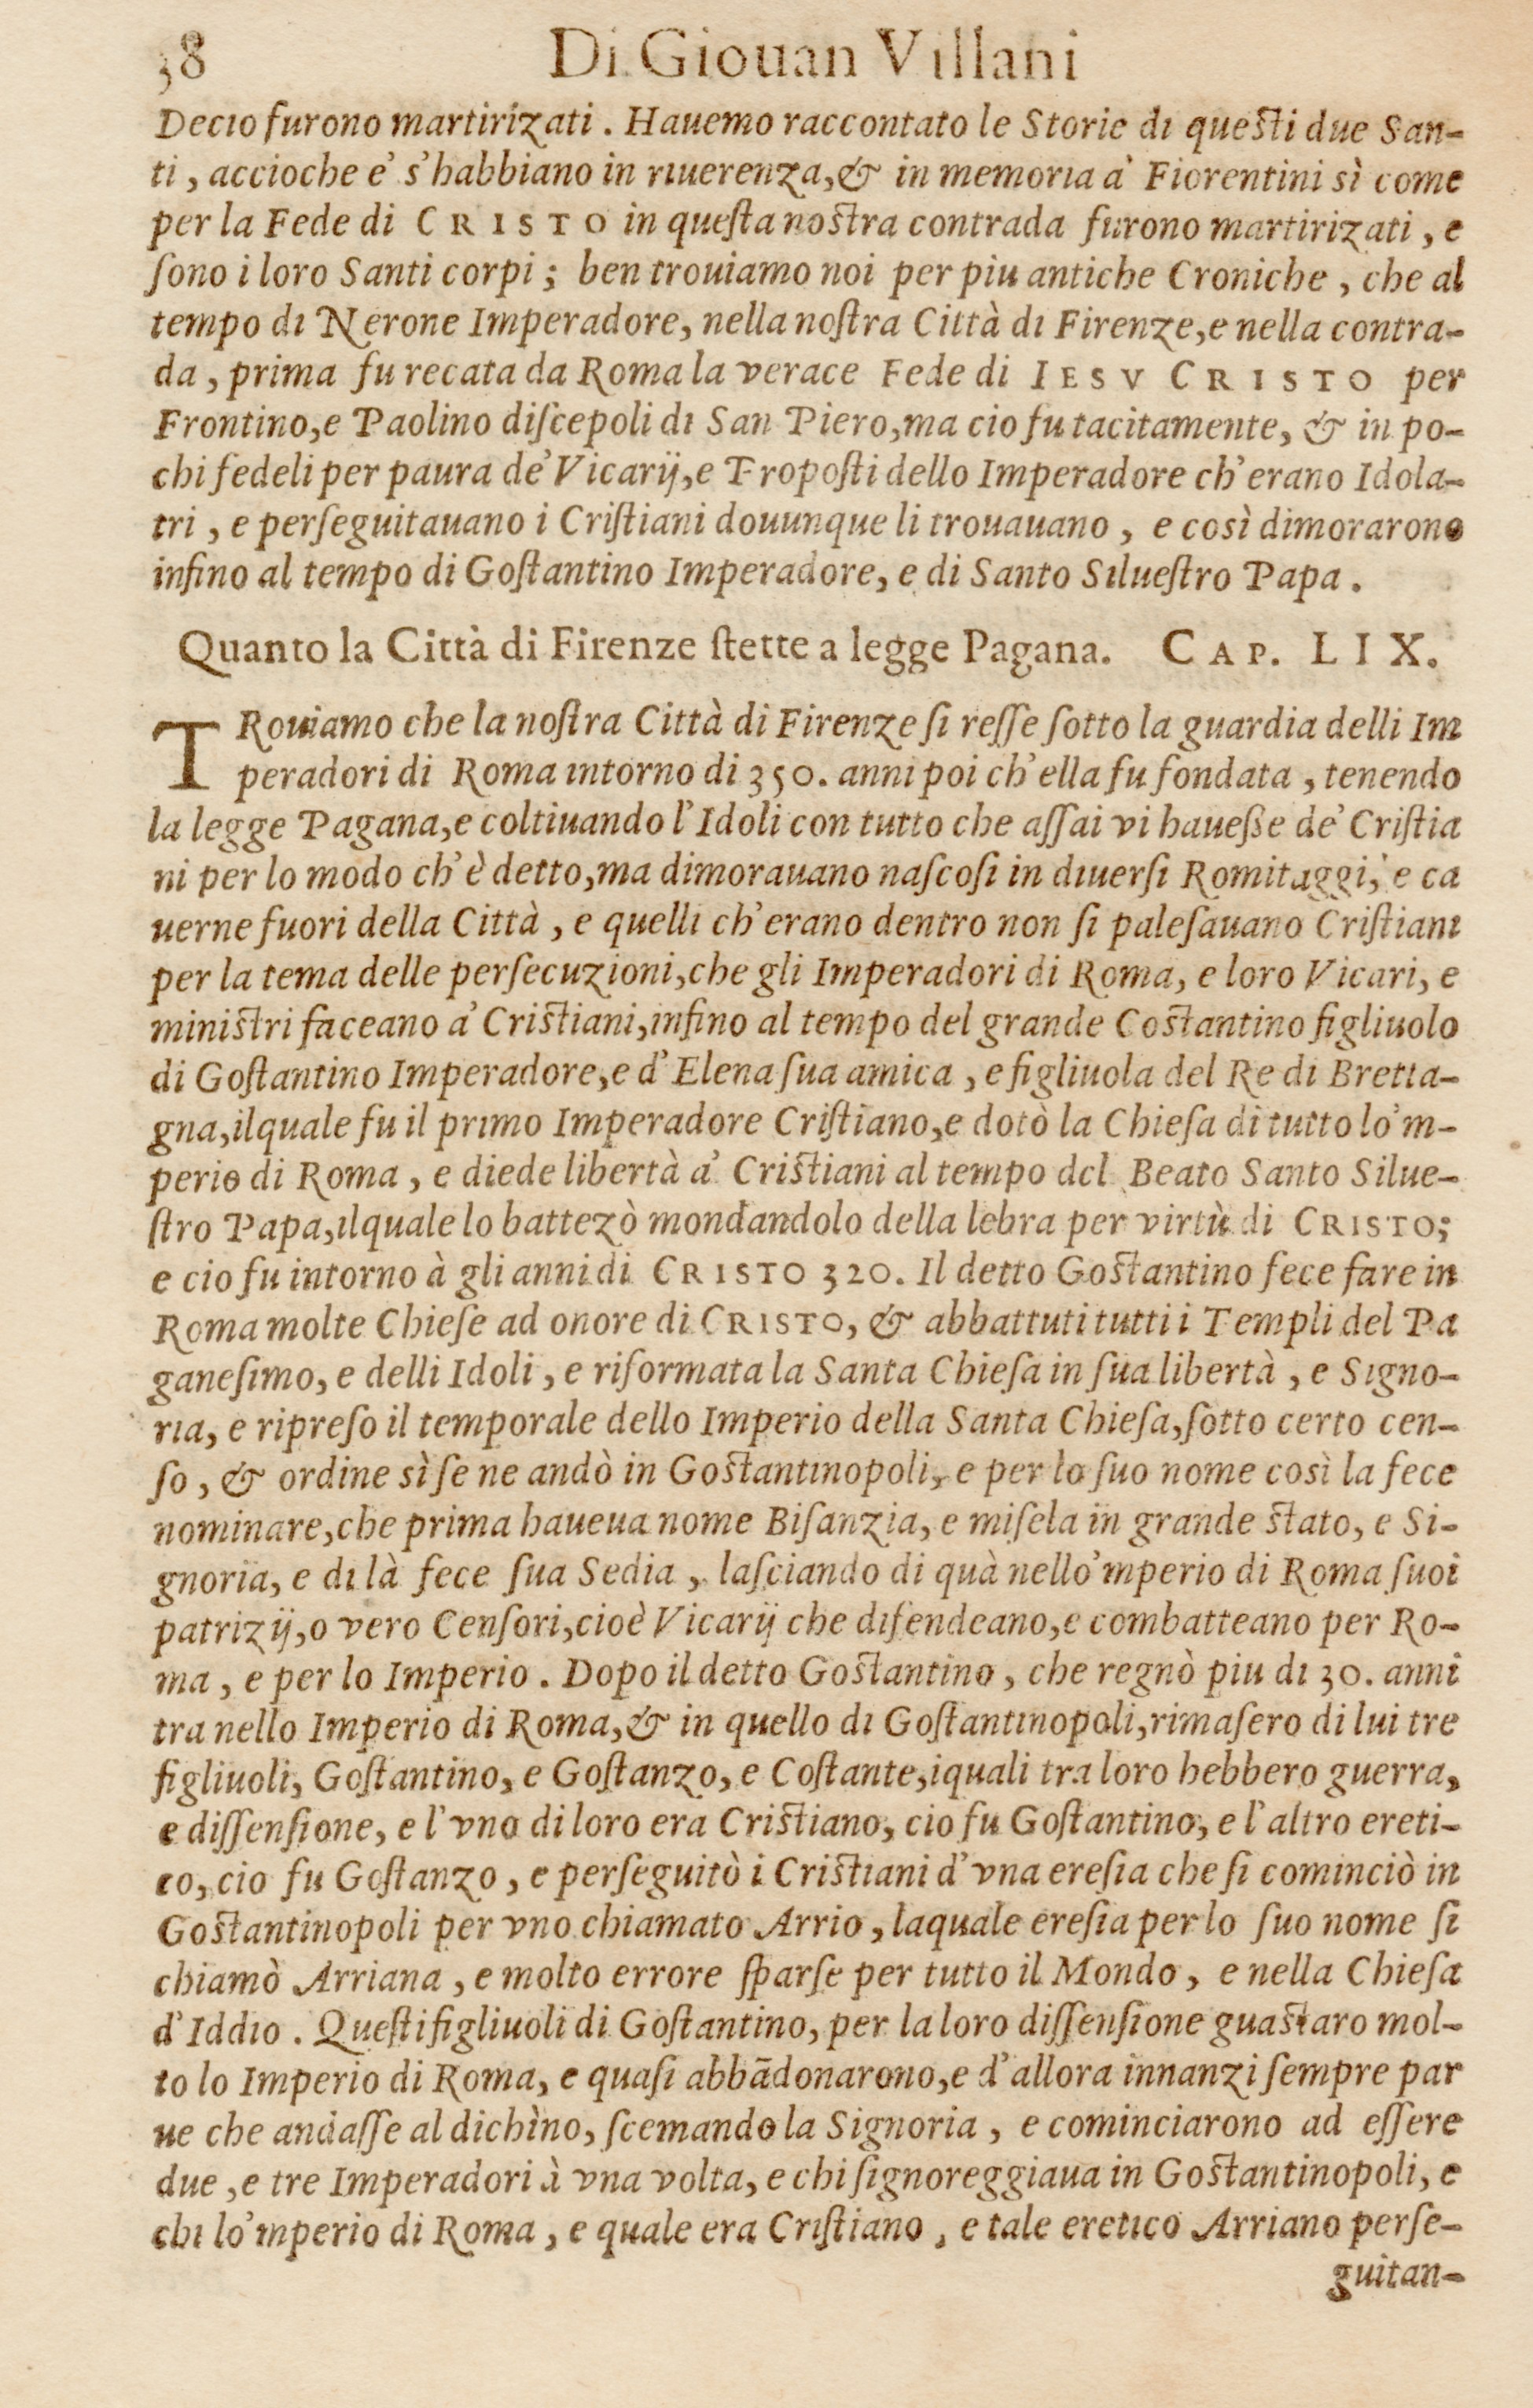 38 Di Giouan Villani
Decio furono martirizati. Hauemo raccontato le Storie di questi due San-
ti, accioche e' s'habbiano in riuerenza, & in memoria à Fiorentini sì come
per la Fede di CRISTO in questa nostra contrada furono martirizati, e
sono i loro Santi corpi; ben trouiamo noi per piu antiche Croniche, che al
tempo di Nerone Imperadore, nella nostra Città di Firenze, e nella contra-
da, prima fu recata da Roma la verace Fede di IESV CRISTO per
Frontino, e Paolino discepoli di San Piero, ma cio fu tacitamente, & in po-
chi fedeli per paura de' Vicarij, e Proposti dello Imperadore ch'erano Idola-
tri, e perseguitauano i Cristiani douunque li trouauano, e così dimorarono
infino al tempo di Gostantino Imperadore, e di Santo Siluestro Papa.
Quanto la Città di Firenze stette a legge Pagana. CAP. LIX.
TRouiamo che la nostra Città di Firenze si resse sotto la guardia delli Im
peradori di Roma intorno di 350. anni poi ch'ella fu fondata, tenendo
la legge Pagana, e coltiuando l'Idoli con tutto che assai vi hauesse de' Cristia
ni per lo modo ch'è detto, ma dimorauano nascosi in diuersi Romitaggi, e ca
uerne fuori della Città, e quelli ch'erano dentro non si palesauano Cristiani
per la tema delle persecuzioni, che gli Imperadori di Roma, e loro Vicari, e
ministri faceano a' Cristiani, infino al tempo del grande Costantino figliuolo
di Gostantino Imperadore, e d'Elena sua amica, e figliuola del Re di Bretta-
gna, ilquale fu il primo Imperadore Cristiano, e dotò la Chiesa di tutto lo'm-
perio di Roma, e diede libertà a' Cristiani al tempo del Beato Santo Silue-
stro Papa, ilquale lo battezò mondandolo della lebra per virtù di CRISTO;
e cio fu intorno à gli anni di CRISTO 320. Il detto Gostantino fece fare in
Roma molte Chiese ad onore di CRISTO, & abbattuti tutti i Templi del Pa
ganesimo, e delli Idoli, e riformata la Santa Chiesa in sua libertà, e Signo-
ria, e ripreso il temporale dello Imperio della Santa Chiesa, sotto certo cen-
so, & ordine sì se ne andò in Gostantinopoli, e per lo suo nome così la fece
nominare, che prima haueua nome Bisanzia, e misela in grande stato, e Si-
gnoria, e di là fece sua Sedia, lasciando di quà nello'mperio di Roma suoi
patrizij, o vero Censori, cioè Vicarij che difendeano, e combatteano per Ro-
ma, e per lo Imperio. Dopo il detto Gostantino, che regnò piu di 30. anni
tra nello Imperio di Roma, & in quello di Gostantinopoli, rimasero di lui tre
figliuoli, Gostantino, e Gostanzo, e Costante, iquali tra loro hebbero guerra,
e dissensione, e l'vno di loro era Cristiano, cio fu Gostantino, e l'altro ereti-
co, cio fu Gostanzo, e perseguitò i Cristiani d'vna eresia che si cominciò in
Gostantinopoli per vno chiamato Arrio, laquale eresia per lo suo nome si
chiamò Arriana, e molto errore sparse per tutto il Mondo, e nella Chiesa
d'Iddio. Questi figliuoli di Gostantino, per la loro dissensione guastaro mol-
to lo Imperio di Roma, e quasi abbādonarono, e d'allora innanzi sempre par
ue che andasse al dichìno, scemando la Signoria, e cominciarono ad essere
due, e tre Imperadori à vna volta, e chi signoreggiaua in Gostantinopoli, e
chi lo'mperio di Roma, e quale era Cristiano, e tale eretico Arriano perse-
guitan-